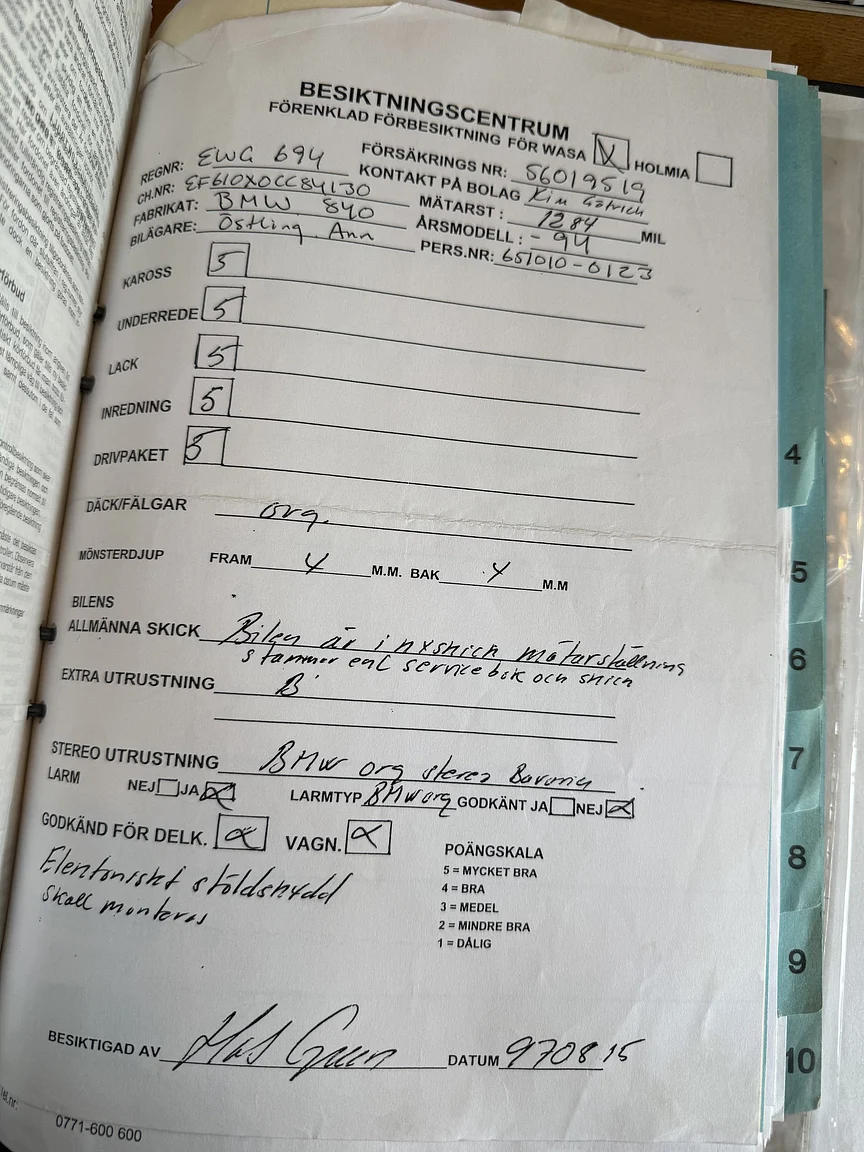 BESIKTNINGSCENTRUM
FÖRENKLAD FÖRBESIKTNING FÖR WASA X HOLMIA
REGNR: EWG 694 FÖRSÄKRINGS NR: 56019519
CH.NR: EF610X0CC84130 KONTAKT PÅ BOLAG Kim
FABRIKAT: BMW 840 MÄTARST : 1284 MIL
BILÄGARE: Östling Ann ÅRSMODELL : - 94
PERS.NR: 651010-0123
KAROSS 5
UNDERREDE 5
LACK 5
INREDNING 5
DRIVPAKET 5
DÄCK/FÄLGAR org.
MÖNSTERDJUP FRAM 4 M.M. BAK 4 M.M
BILENS
ALLMÄNNA SKICK Bilen är i nyskick mätarställning
stämmer enl servicebok och skick
EXTRA UTRUSTNING
STEREO UTRUSTNING BMW org stereo Bavaria
LARM NEJ JA X LARMTYP BMW org GODKÄNT JA NEJ X
GODKÄND FÖR DELK. X VAGN. X
Elektroniskt stöldskydd
skall monteras
POÄNGSKALA
5 = MYCKET BRA
4 = BRA
3 = MEDEL
2 = MINDRE BRA
1 = DÅLIG
BESIKTIGAD AV DATUM 970815
0771-600 600
4
5
6
7
8
9
10